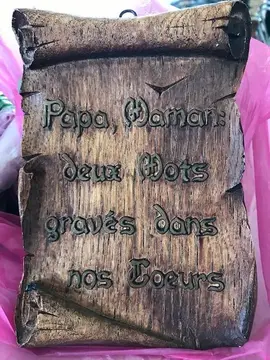 Papa, Maman:
deux Mots
gravés dans
nos Coeurs